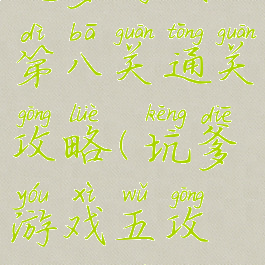 dì bā guān tōng guān
第八关通关
gōng lüè kēng diē
攻略(坑爹
yóu xì wǔ gōng
游戏五攻